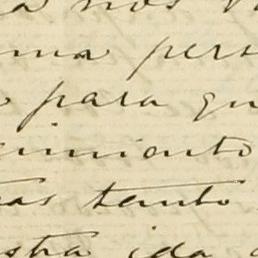 a nos
ma pers
para qu
imiento
as tanto
stra ida